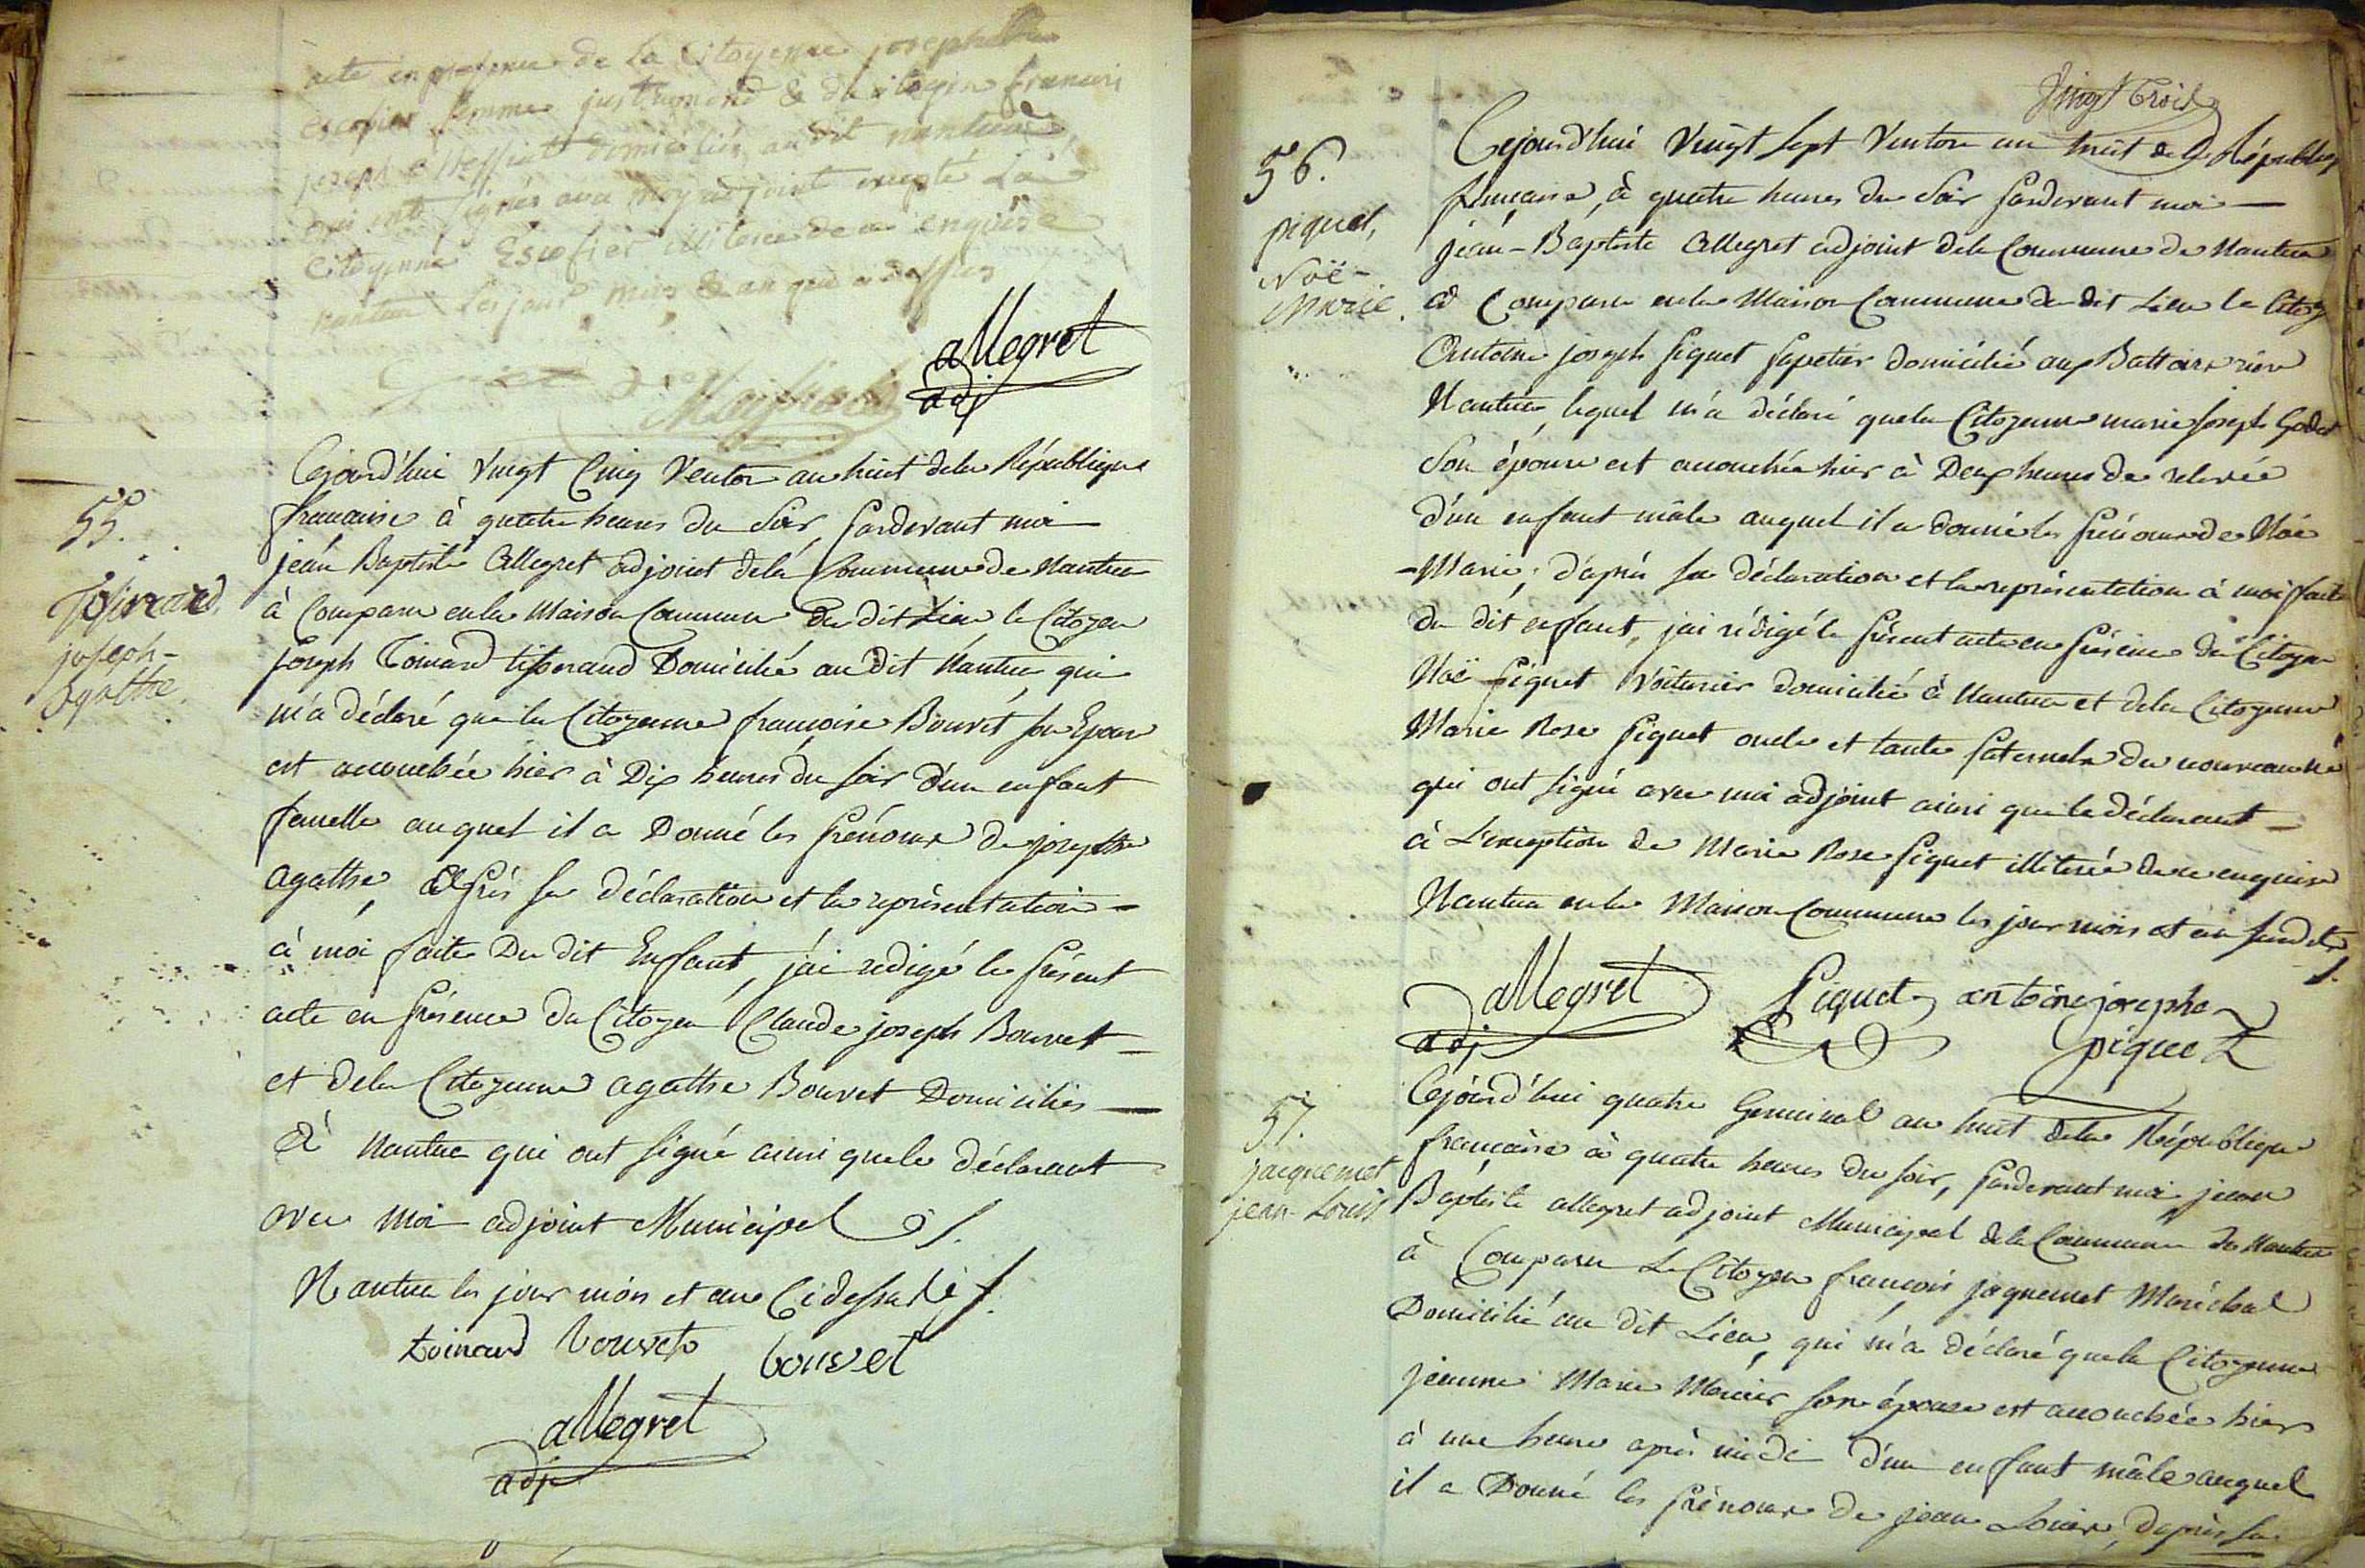 acte en présence de la Citoyenne josephthe
escofier femme justumond & du citoyen francois
joseph domiciliés au dit nantua,
qui ont signés avec moy adjoint excepté La
Citoyenne Escofier illiterée de ce enquise
nantua les jour mois & an que cy dessus
allegret
adj
55.
Toinard
joseph-
agathe.
Cejourd'hui Vingt Cinq Ventose an huit dela République
francaise à quatre heures du Soir, pardevant moi
jéan Baptiste Allegret adjoint dela Commune de Nantua
à Comparu en la Maison Commune du dit Lieu le Citoyen
joseph Toinard tisserand Domicilié au dit Nantua, qui
m'a déclaré que la Citoyenne francoise Bouvet son Epouse
est accouchée hier à Dix heures du soir d'un enfant
femelle auquel il a Donné les prénoms de josephte
agathe, après sa déclaration et la représentation
à moi faite Du dit Enfant, j'ai redigé le présent
acte en présence du Citoyen Claude joseph Bouvet
et dela Citoyenne agathe Bouvet Domiciliés
à Nantua qui ont signé ainsi que le déclarant
avec moi adjoint Municipal
Nantua les jour mois et an Cidessus
toinard bouvet bouvet
allegret
adj
Vingt Trois
56.
piquet,
Noë-
Marie.
Cejourd'hui Vingt Sept Ventose an huit de la République
francaise, à quatre heures du Soir pardevant moi
jéan-Baptiste Allegret adjoint dela Commune de Nantua
à Comparu en la Maison Commune du dit Lieu le Citoy
Antoine joseph piquet papetier domicilié aux Battoirs rière
Nantua, lequel m'a déclaré que la Citoyenne marie joseph
Son épouse est accouchée hier à Deux heures de relevée
d'un enfant mâle auquel il a donné les prénoms de Noë
-Marie; d'après sa déclaration et la représentation à moi faite
du dit enfant, j'ai rédigé le présent acte en présence du Citoyen
Noë piquet Voiturier domicilié à Nantua et dela Citoyenne
Marie Rose piquet oncle et tante paternels du nouveau né
qui ont signé avec moi adjoint ainsi que le déclarant
à L'exception de Marie Rose piquet illiterée de ce enquise
Nantua en la Maison Commune les jour mois et an susdits
allegret Piquet antoine josephe
adj piquet
57.
jacquemet
jean-Louis
Cejourd'hui quatre Germinal an huit dela République
francaise à quatre heures du soir, pardevant moi jean
Baptiste allegret adjoint Municipal dela Commune de Nantua
à Comparu Le Citoyen francois jaquemet Maréchal
Domicilié au dit Lieu, qui m'a déclaré que la Citoyenne
jeanne Marie Mercier son épouse est accouchée hier
à une heure après midi d'un enfant mâle auquel
il a Donné les prénoms de jean Louis, d'après sa